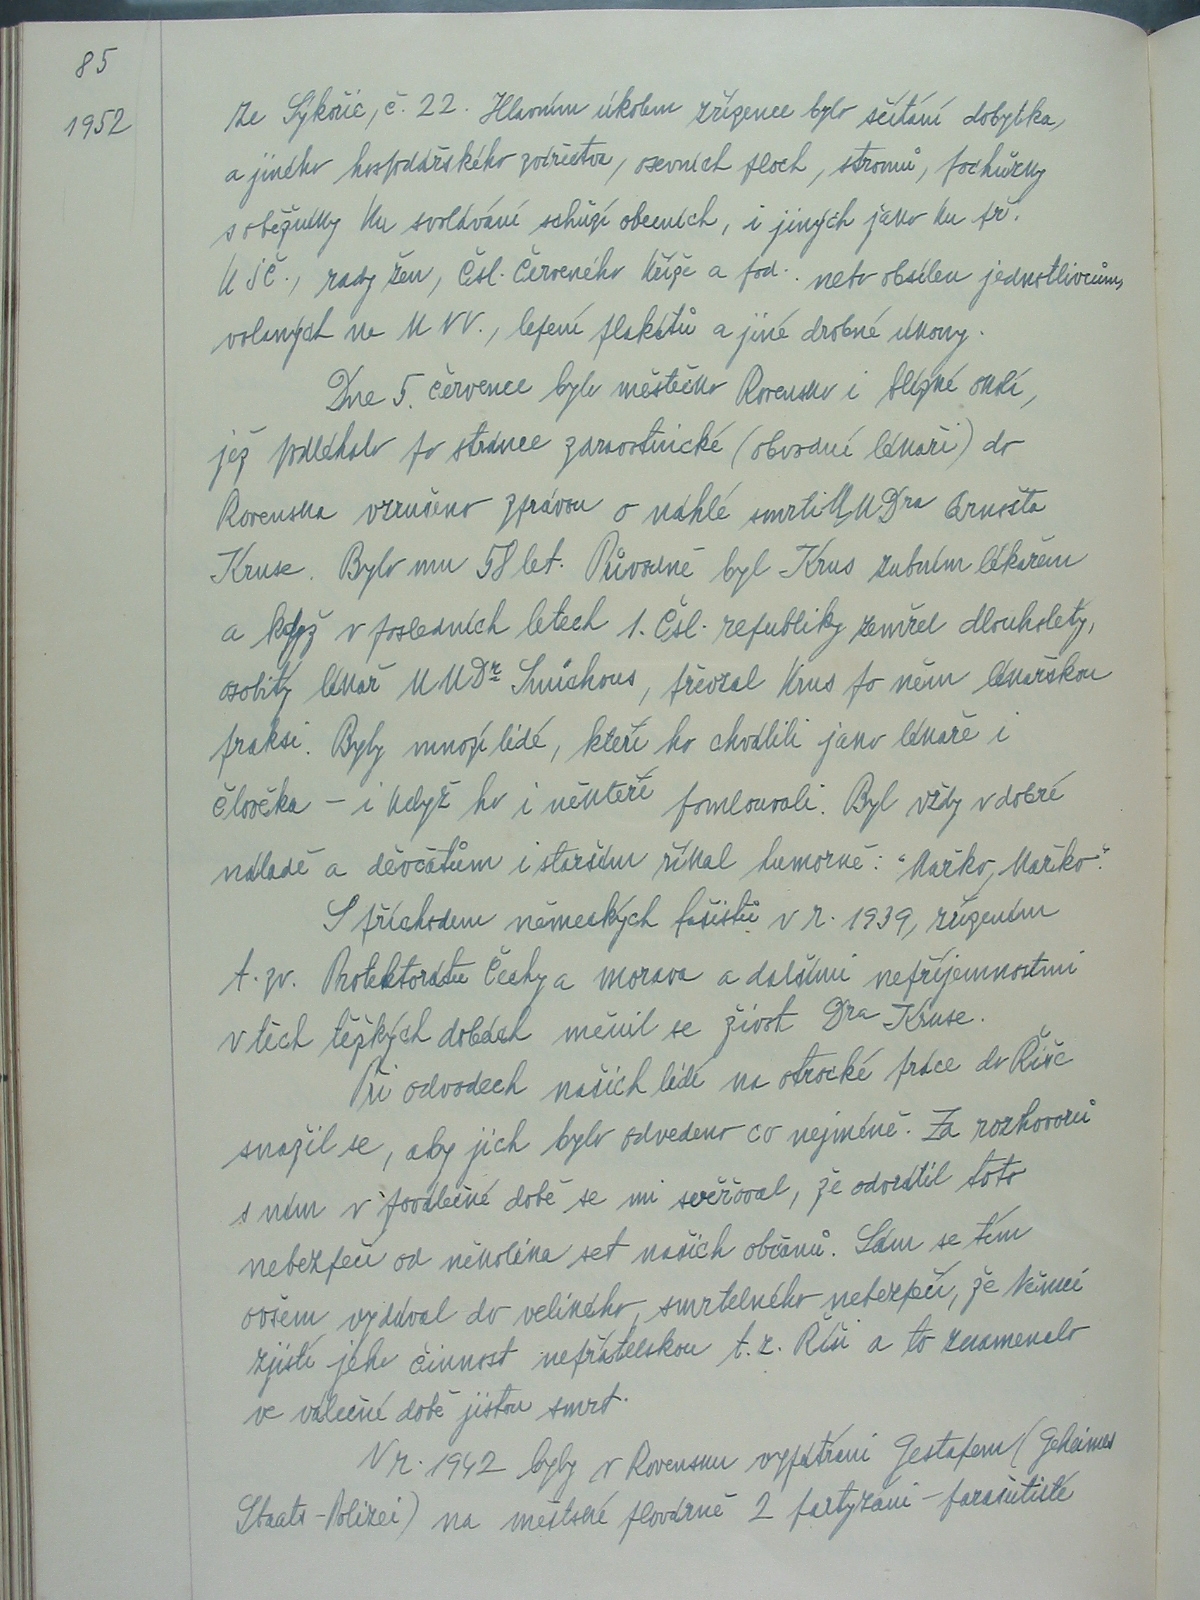 85
1952
ze Sýkořic, č. 22. Hlavním úkolem zřízence bylo sčítání dobytka,
a jiného hospodářského zvířectva, osevních ploch, stromů, pochůzky
s oběžníky ku svolávání schůzí obecních, i jiných jako ku př.
KSČ., rady žen, Čsl. Červeného kříže a pod. nebo obsílen jednotlivcům,
volaných na MNV., lepení plakátů a jiné drobné úkony.
Dne 5. července bylo městečko Rovensko i blízké okolí,
jež podléhalo po stránce zdravotnické (obvodní lékaři) do
Rovenska vzrušeno zprávou o náhlé smrti MUDra Arnošta
Kruse. Bylo mu 58 let. Původně byl Krus zubním lékařem
a když v posledních letech 1. Čsl. republiky zemřel dlouholetý,
osobitý lékař MUDr Smíchous, převzal Krus po něm lékařskou
praksi. Byly mnozí lidé, kteří ho chválili jako lékaře i
člověka – i když ho i někteří pomlouvali. Byl vždy v dobré
náladě a děvčatům i starším říkal humorně: "Mařko, Mařko".
S příchodem německých fašistů v r. 1939, zřízením
t. zv. Protektorátu Čechy a Morava a dalšími nepříjemnostmi
v těch těžkých dobách měnil se život Dra Kruse.
Při odvodech našich lidí na otrocké práce do Říše
snažil se, aby jich bylo odvedeno co nejméně. Za rozhovorů
s ním v poválečné době se mi svěřoval, že odvrátil toto
nebezpečí od několika set našich občanů. Sám se tím
ovšem vydával do velikého, smrtelného nebezpečí, že Němci
zjistí jeho činnost nepřátelskou t. z. Říši a to znamenalo
ve válečné době jistou smrt.
V r. 1942 byly v Rovensku vypátráni Gestapem (Geheimes
Staats-Polizei) na městské plovárně 2 partyzáni – parašutisté